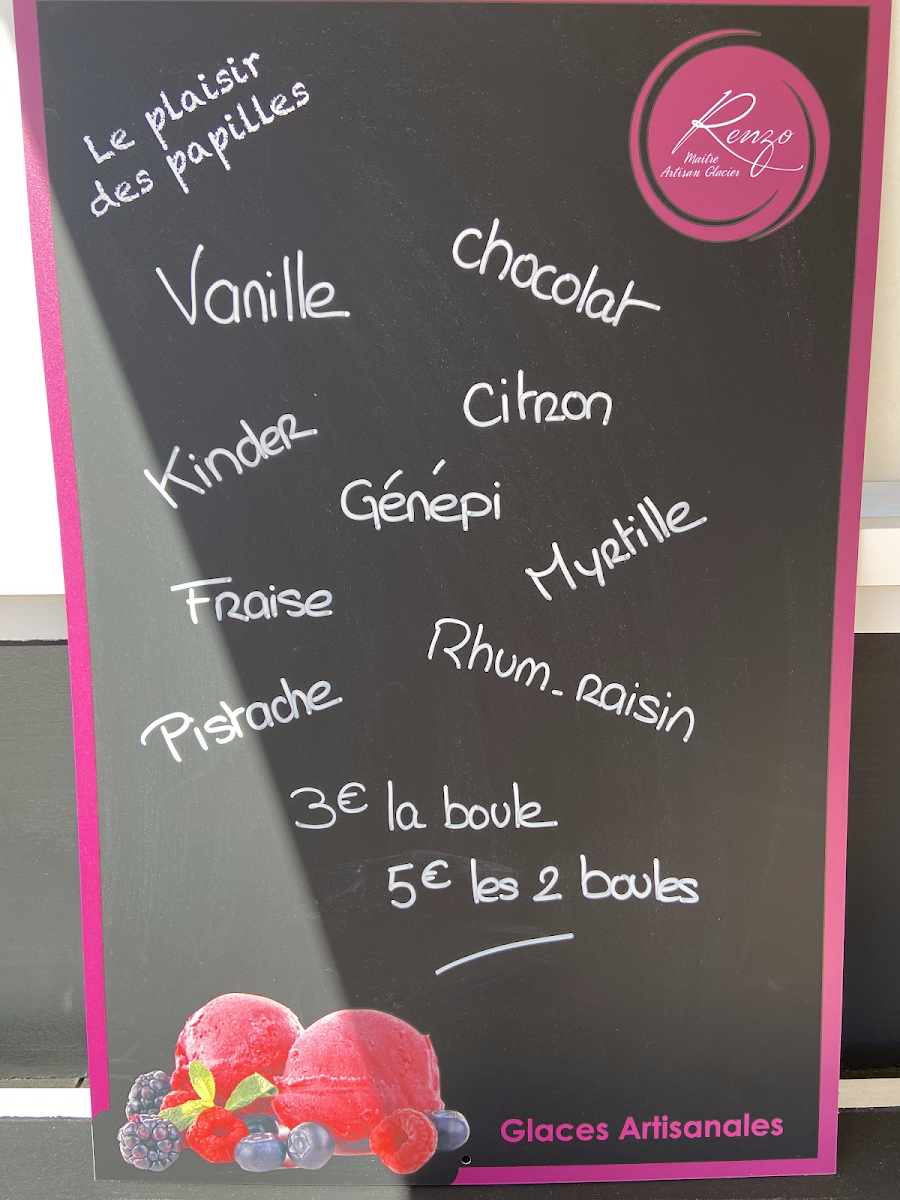 Le plaisir
des papilles
Renzo
Maître
Artisan Glacier
Vanille
chocolat
Citron
Kinder
Génépi
Myrtille
Fraise
Rhum-raisin
Pistache
3€ la boule
5€ les 2 boules
Glaces Artisanales